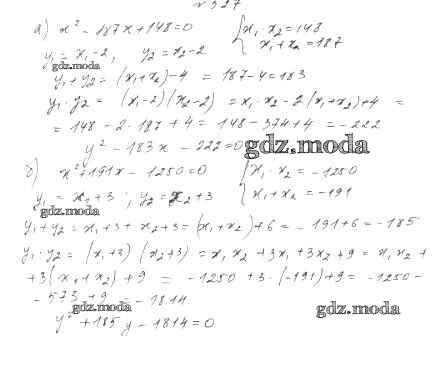 №327
а) x² - 187x + 148 = 0 { x₁ x₂ = 148
x₁ + x₂ = 187
y₁ = x₁ - 2, y₂ = x₂ - 2
gdz.moda
y₁ + y₂ = (x₁ + x₂) - 4 = 187 - 4 = 183
y₁ · y₂ = (x₁ - 2)(x₂ - 2) = x₁ · x₂ - 2(x₁ + x₂) + 4 =
= 148 - 2 · 187 + 4 = 148 - 374 + 4 = - 222
y² - 183x - 222 = 0
gdz.moda
б) x² + 191x - 1250 = 0 { x₁ · x₂ = - 1250
x₁ + x₂ = - 191
y₁ = x₁ + 3; y₂ = x₂ + 3
gdz.moda
y₁ + y₂ = x₁ + 3 + x₂ + 3 = (x₁ + x₂) + 6 = - 191 + 6 = - 185
y₁ · y₂ = (x₁ + 3)(x₂ + 3) = x₁ x₂ + 3x₁ + 3x₂ + 9 = x₁ x₂ +
+ 3(x₁ + x₂) + 9 = - 1250 + 3 · (-191) + 9 = - 1250 -
- 573 + 9 = - 1814
gdz.moda
gdz.moda
y² + 185y - 1814 = 0